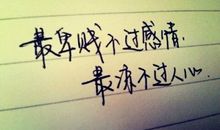 最卑贱不过感情,
最凉不过人心.